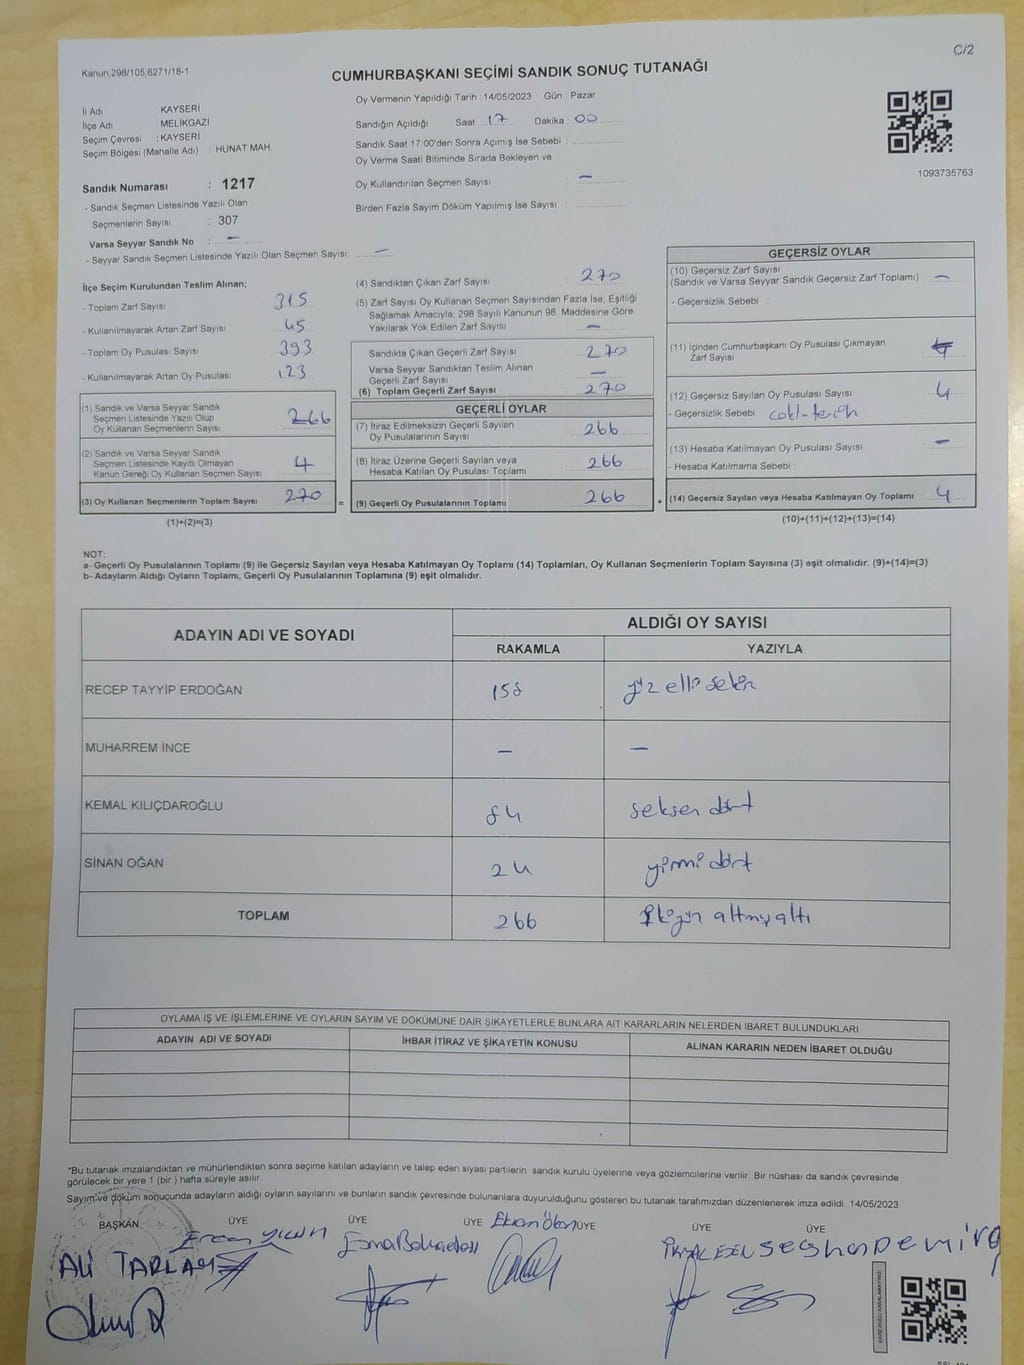 C/2
Kanun 298/105,6271/18-1
CUMHURBAŞKANI SEÇİMİ SANDIK SONUÇ TUTANAĞI
İl Adı : KAYSERİ
İlçe Adı : MELİKGAZİ
Seçim Çevresi : KAYSERİ
Seçim Bölgesi (Mahalle Adı) : HUNAT MAH.
Sandık Numarası : 1217
- Sandık Seçmen Listesinde Yazılı Olan
Seçmenlerin Sayısı : 307
Varsa Seyyar Sandık No : —
- Seyyar Sandık Seçmen Listesinde Yazılı Olan Seçmen Sayısı: —
Oy Vermenin Yapıldığı Tarih : 14/05/2023 Gün : Pazar
Sandığın Açıldığı Saat : 17 Dakika : 00
Sandık Saat 17:00'den Sonra Açımış İse Sebebi :
Oy Verme Saati Bitiminde Sırada Bekleyen ve
Oy Kullandırılan Seçmen Sayısı : —
Birden Fazla Sayım Döküm Yapılmış İse Sayısı :
1093735763
İlçe Seçim Kurulundan Teslim Alınan;
- Toplam Zarf Sayısı : 315
- Kullanılmayarak Artan Zarf Sayısı : 45
- Toplam Oy Pusulası Sayısı : 393
- Kullanılmayarak Artan Oy Pusulası : 123
(1) Sandık ve Varsa Seyyar Sandık
Seçmen Listesinde Yazılı Olup
Oy Kullanan Seçmenlerin Sayısı : 266
(2) Sandık ve Varsa Seyyar Sandık
Seçmen Listesinde Kayıtlı Olmayan
Kanun Gereği Oy Kullanan Seçmen Sayısı : 4
(3) Oy Kullanan Seçmenlerin Toplam Sayısı : 270 =
(1)+(2)=(3)
(4) Sandıktan Çıkan Zarf Sayısı : 270
(5) Zarf Sayısı Oy Kullanan Seçmen Sayısından Fazla İse, Eşitliği
Sağlamak Amacıyla; 298 Sayılı Kanunun 98. Maddesine Göre
Yakılarak Yok Edilen Zarf Sayısı : —
Sandıkta Çıkan Geçerli Zarf Sayısı : 270
Varsa Seyyar Sandıktan Teslim Alınan
Geçerli Zarf Sayısı : —
(6) Toplam Geçerli Zarf Sayısı : 270
GEÇERLİ OYLAR
(7) İtiraz Edilmeksizin Geçerli Sayılan
Oy Pusulalarının Sayısı : 266
(8) İtiraz Üzerine Geçerli Sayılan veya
Hesaba Katılan Oy Pusulası Toplamı : 266
(9) Geçerli Oy Pusulalarının Toplamı : 266 +
GEÇERSİZ OYLAR
(10) Geçersiz Zarf Sayısı
(Sandık ve Varsa Seyyar Sandık Geçersiz Zarf Toplamı) : —
- Geçersizlik Sebebi :
(11) İçinden Cumhurbaşkanı Oy Pusulası Çıkmayan
Zarf Sayısı :
(12) Geçersiz Sayılan Oy Pusulası Sayısı : 4
- Geçersizlik Sebebi :
(13) Hesaba Katılmayan Oy Pusulası Sayısı : —
- Hesaba Katılmama Sebebi :
(14) Geçersiz Sayılan veya Hesaba Katılmayan Oy Toplamı : 4
(10)+(11)+(12)+(13)=(14)
NOT:
a- Geçerli Oy Pusulalarının Toplamı (9) ile Geçersiz Sayılan veya Hesaba Katılmayan Oy Toplamı (14) Toplamları, Oy Kullanan Seçmenlerin Toplam Sayısına (3) eşit olmalıdır. (9)+(14)=(3)
b- Adayların Aldığı Oyların Toplamı, Geçerli Oy Pusulalarının Toplamına (9) eşit olmalıdır.
ADAYIN ADI VE SOYADI ALDIĞI OY SAYISI
RAKAMLA YAZIYLA
RECEP TAYYİP ERDOĞAN 158 yüz elli sekiz
MUHARREM İNCE — —
KEMAL KILIÇDAROĞLU 84 seksen dört
SİNAN OĞAN 24 yirmi dört
TOPLAM 266 ikiyüz altmış altı
OYLAMA İŞ VE İŞLEMLERİNE VE OYLARIN SAYIM VE DÖKÜMÜNE DAİR ŞİKAYETLERLE BUNLARA AİT KARARLARIN NELERDEN İBARET BULUNDUKLARI
ADAYIN ADI VE SOYADI İHBAR İTİRAZ VE ŞİKAYETİN KONUSU ALINAN KARARIN NEDEN İBARET OLDUĞU
*Bu tutanak imzalandıktan ve mühürlendikten sonra seçime katılan adayların ve talep eden siyasi partilerin sandık kurulu üyelerine veya gözlemcilerine verilir. Bir nüshası da sandık çevresinde
görülecek bir yere 1 (bir) hafta süreyle asılır.
Sayım ve döküm sonuçunda adayların aldığı oyların sayılarını ve bunların sandık çevresinde bulunanlara duyurulduğunu gösteren bu tutanak tarafımızdan düzenlenerek imza edildi. 14/05/2023
BAŞKAN ÜYE ÜYE ÜYE ÜYE ÜYE ÜYE
ALİ